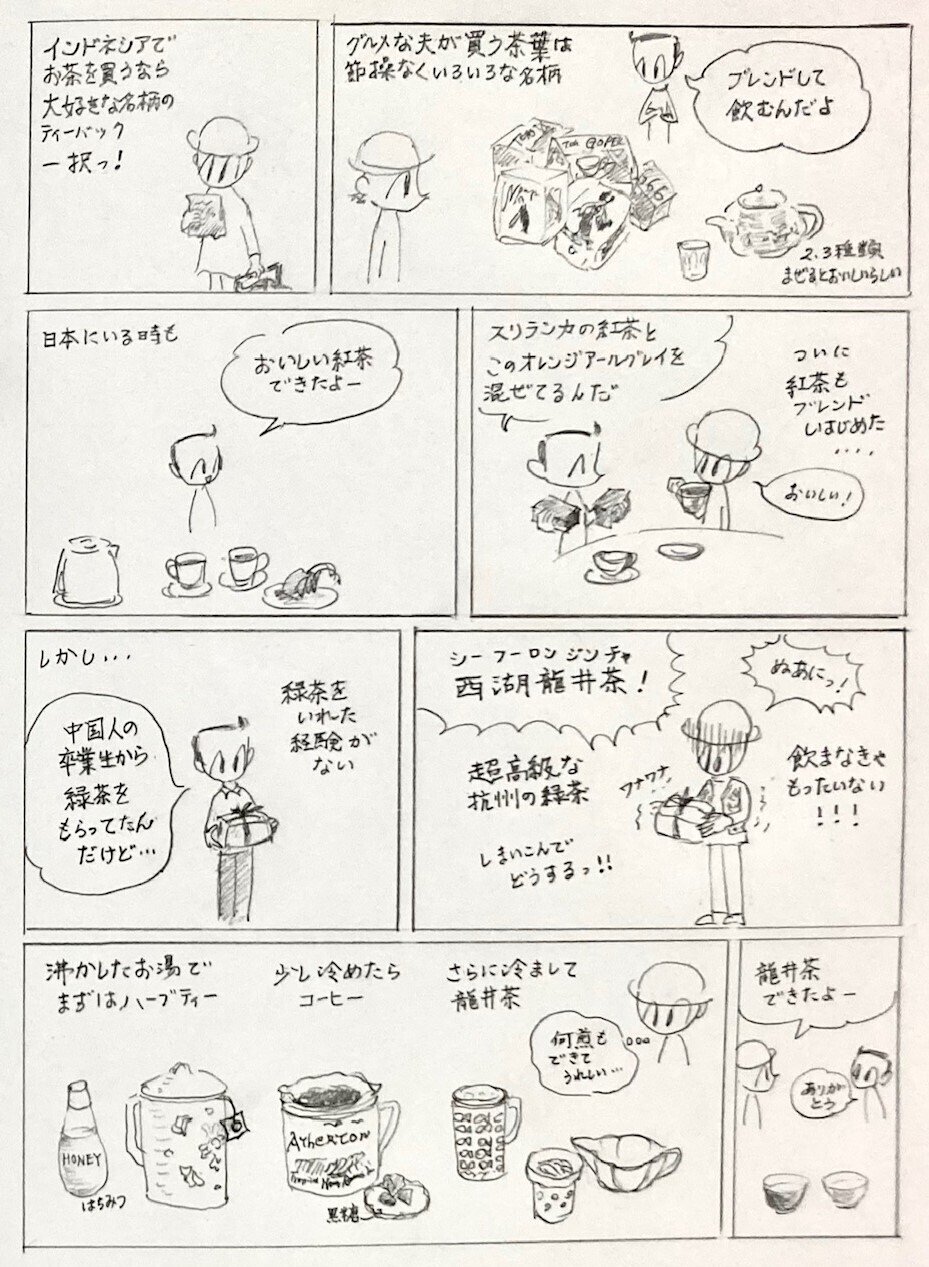 インドネシアで
お茶を買うなら
大好きな名柄の
ティーバック
一択っ!
グルメな夫が買う茶葉は
節操なくいろいろな名柄
ブレンドして
飲むんだよ
TEH GOPEK
2.3種類
まぜるとおいしいらしい
日本にいる時も
おいしい紅茶
できたよー
スリランカの紅茶と
このオレンジアールグレイを
混ぜてるんだ
ついに
紅茶も
ブレンド
しはじめた
....
おいしい!
しかし...
中国人の
卒業生から
緑茶を
もらってたん
だけど...
緑茶を
いれた
経験が
ない
シーフーロンジンチャ
西湖龍井茶!
ぬあにっ!
超高級な
杭州の緑茶
ワナワナ
飲まなきゃ
もったいない
!!!
しまいこんで
どうするっ!!
沸かしたお湯で
まずはハーブティー
少し冷めたら
コーヒー
さらに冷まして
龍井茶
何煎も
できて
うれしい...
HONEY
はちみつ
Atherton
黒糖
龍井茶
できたよー
ありが
とう